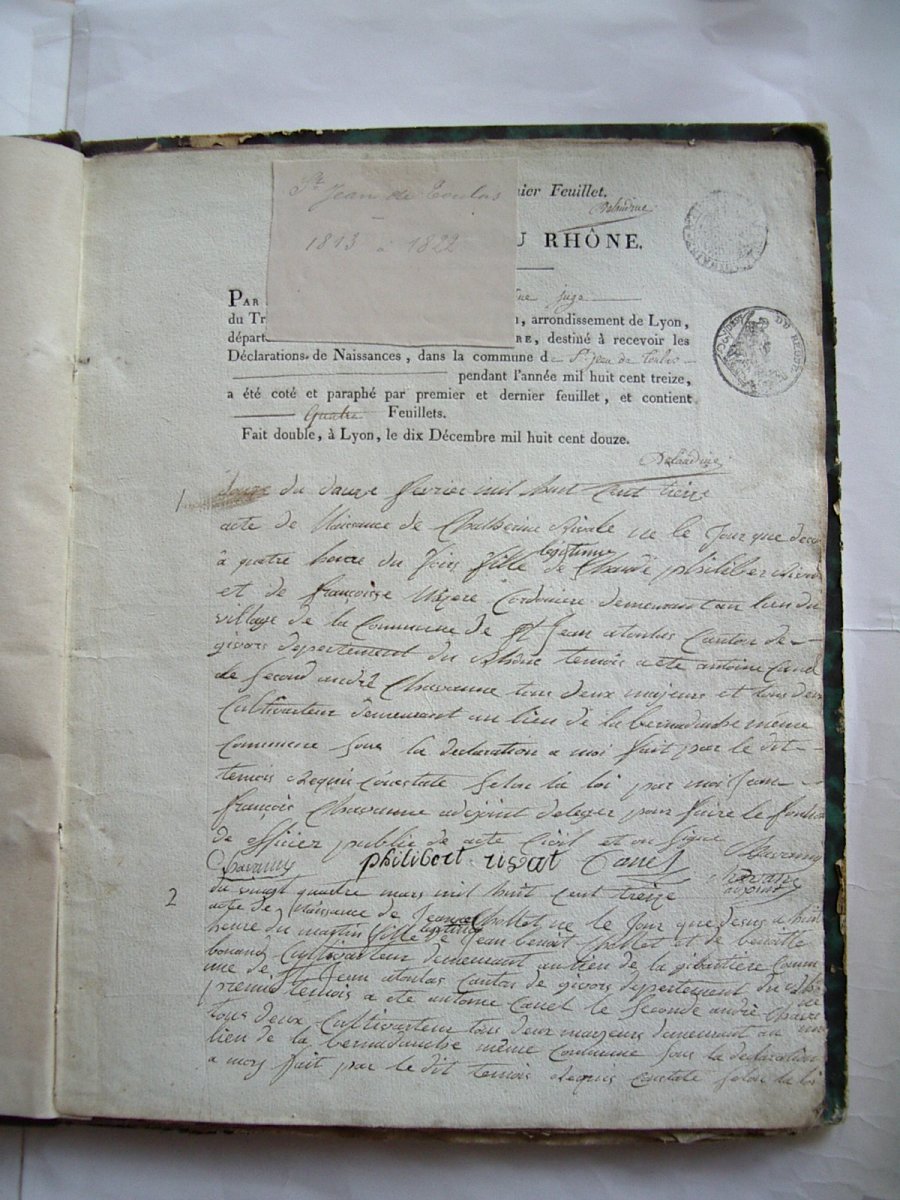 St Jean de Toulas
1813 à 1822
nier Feuillet.
Delandine
U RHÔNE.
PAR juge
du Tr , arrondissement de Lyon,
départ RE, destiné à recevoir les
Déclarations de Naissances, dans la commune d St Jean de Toulas
pendant l'année mil huit cent treize,
a été coté et paraphé par premier et dernier feuillet, et contient
Quatre Feuillets.
Fait double, à Lyon, le dix Décembre mil huit cent douze.
Delandine
1 du douze fevrier mil huit cent
acte de Naissance de Catherine ne le Jour que
à quatre heure du fille legitime de Claude philiber
et de françoise Cordonier demeurant au lieu du
village de la Commune de St Jean atoulas Canton de
givors departement du Rhône temois a ete antoine Canel
le second andré Chavanne tous deux majeurs et tous deux
Cultivateur demeurant au lieu de la bernadanche même
Commune sous la declaration a moi fait par le dit
temois Requis Constate Selon la loi par moi Jean
françois Chavanne adjoint deleger pour faire le fonction
de officier public de acte Civil et on Signe Chavanne
Chavanne philibert rivat Canel Chavanne
adjoint
2 du vingt quatre mars mil huit cent treize
acte de Naissance de ne le Jour que desus a huit
heure du matin fille legitime de Jean benoit et de benoitte
bonand Cultivateur demeurant au lieu de la gibertiere Comm
une de St Jean atoulas Canton de givors departement du Rhône
premie temois a ete antoine Canel le Seconde andré Chavanne
tous deux Cultivateur tous deux majeurs demeurant au
lieu de la bernadanche même Commune Sous la declaration
a moy fait par le dit temois Requis Constate Selon la loi